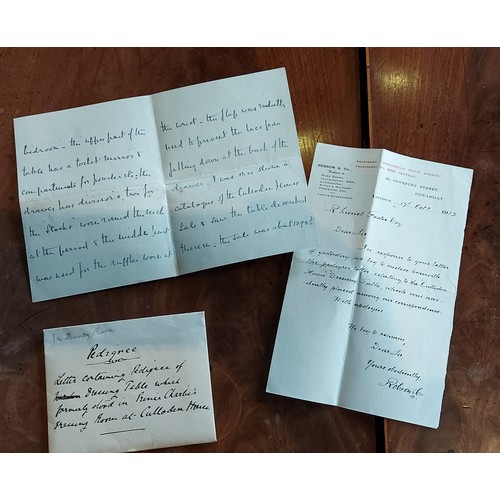 bedroom – the upper part of the
table has a toilet mirror &
compartments for powder etc; the
drawer has divisions, two for
the Stocks worn round the neck
at the period & the middle part
was used for the ruffles worn at
the wrist – the flap was evidently
used to prevent the lace from
falling down at the back of the
drawer. I was once shown a
catalogue of the Culloden House
Sale & saw the table described
therein – the sale was about
ROBSON & Co.
COVENTRY STREET
PICCADILLY
LONDON 1913
Lionel Esq
Dear Sir
In response to your letter
of yesterday we beg to enclose herewith
the letter relating to the Culloden
House Dressing Table, which was
placed among our correspondence.
With apologies
We beg to remain
Dear Sir
Yours obediently,
Robson & Co
Pedigree
Letter containing Pedigree of
Dressing Table which
formerly stood in Prince Charlie's
Dressing Room at Culloden House